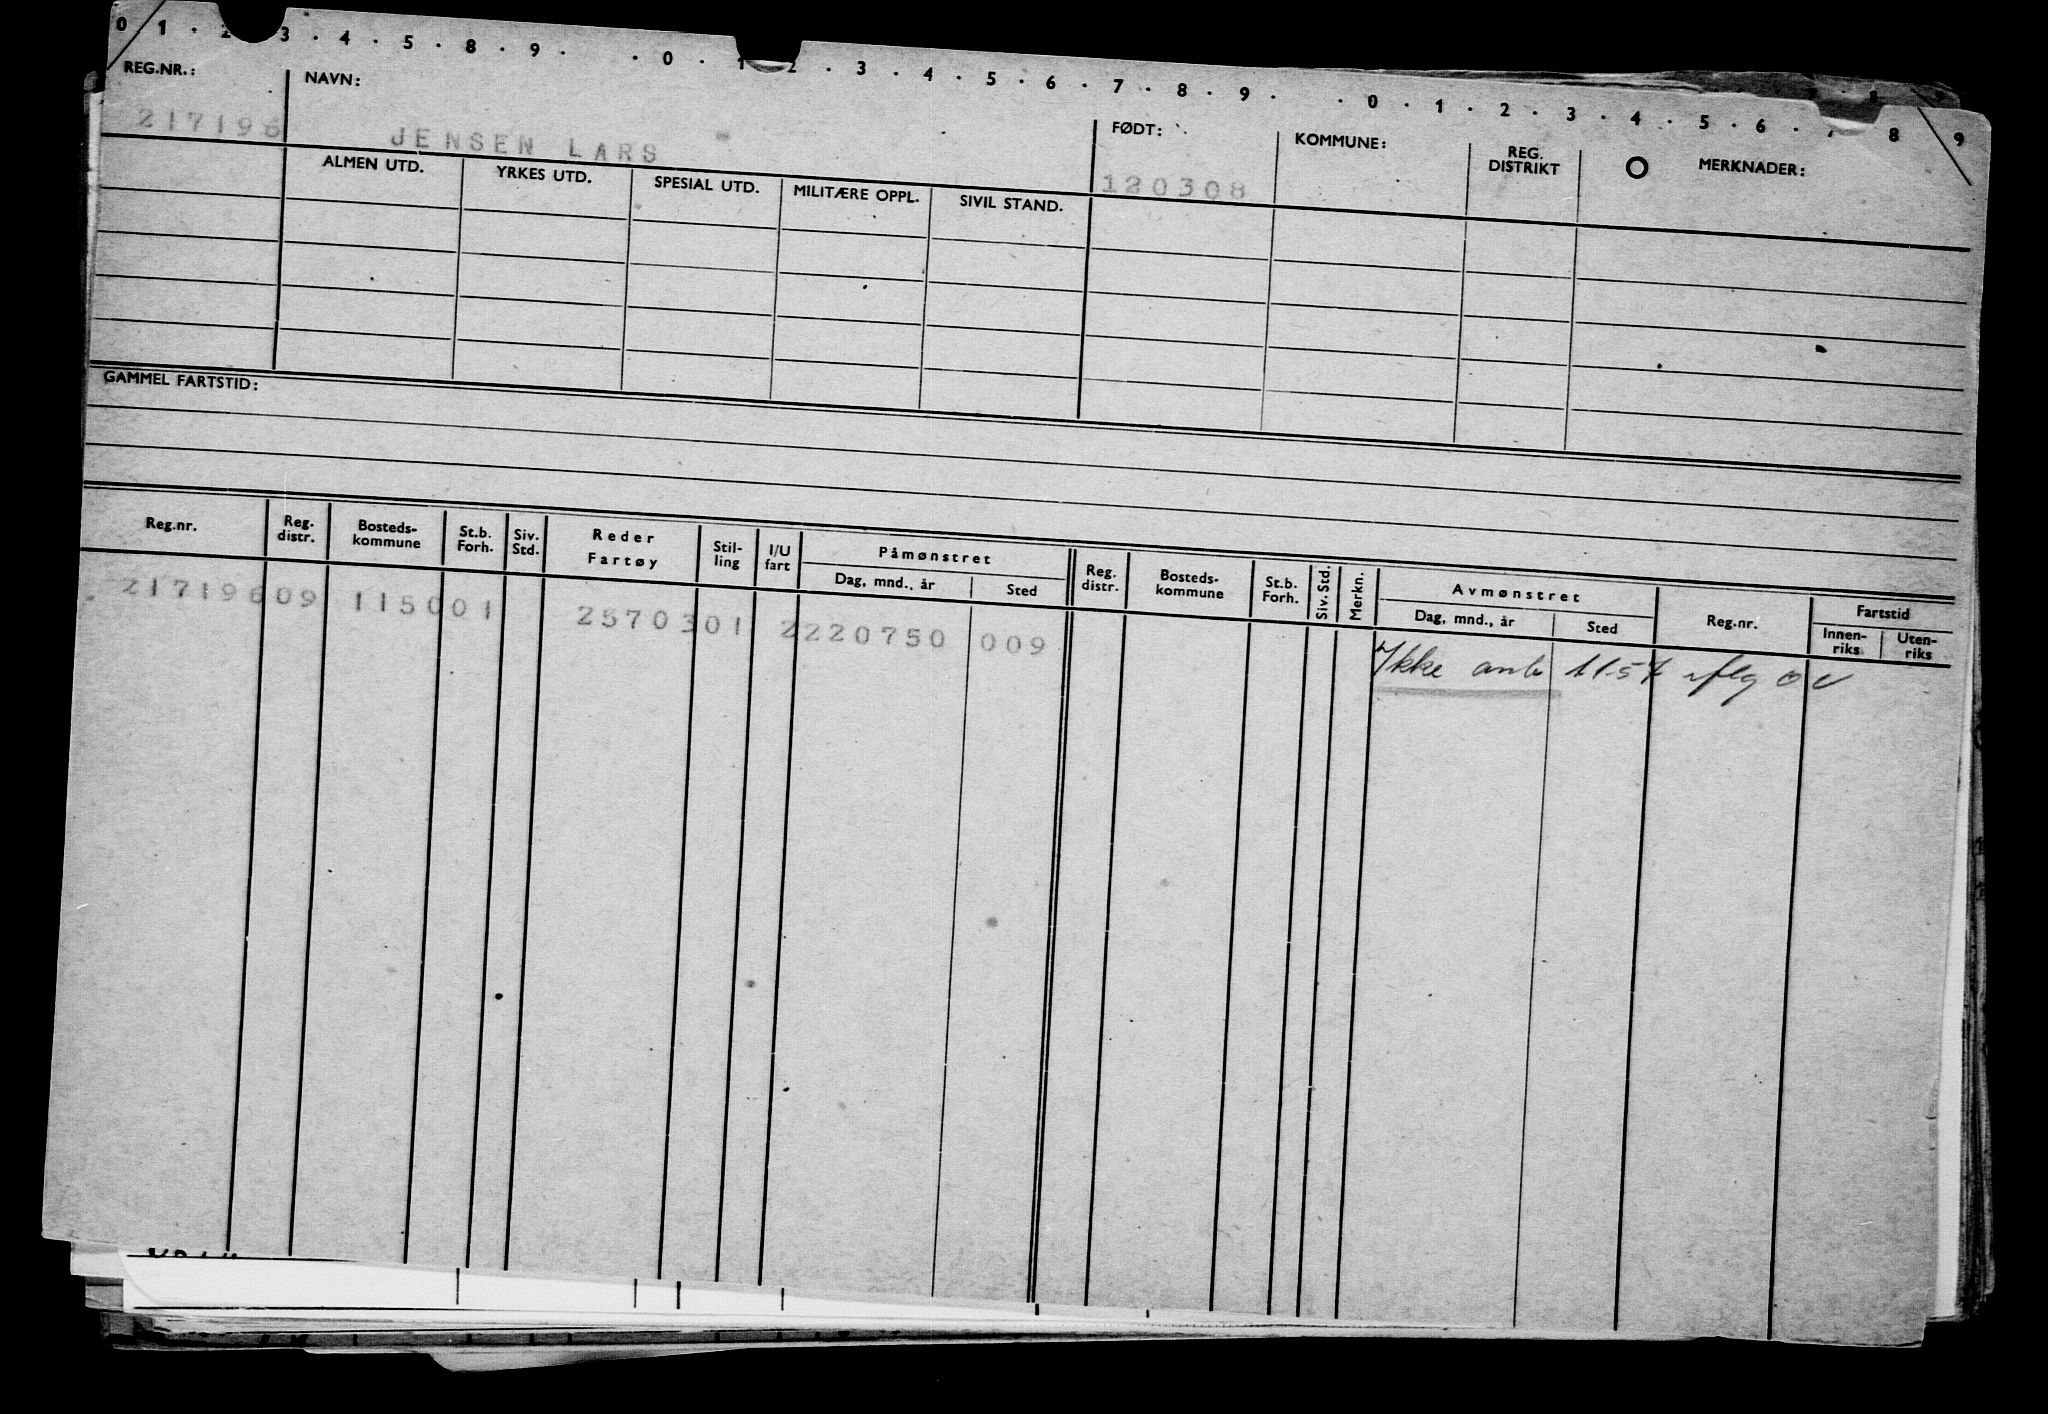 0 1 · 2 3 · 4 · 5 · 8 · 9 · · 0 · 1 2 · 3 · 4 · 5 · 6 · 7 · 8 · 9 · · 0 · 1 · 2 · 3 · 4 · 5 · 6 · 7 8 9
REG.NR.: NAVN: FØDT: KOMMUNE: REG. DISTRIKT O MERKNADER:
217196 JENSEN LARS 120308
ALMEN UTD. YRKES UTD. SPESIAL UTD. MILITÆRE OPPL. SIVIL STAND.
GAMMEL FARTSTID:
Reg.nr. Reg. distr. Bosteds-kommune St.b. Forh. Siv. Std. Reder Fartøy Stil-ling I/U fart Påmønstret Dag, mnd., år Sted Reg. distr. Bosteds-kommune St.b. Forh. Siv. Std. Merkn. Avmønstret Dag, mnd., år Sted Reg.nr. Fartstid Innen-riks Uten-riks
21719609 115001 2570301 2220750 009
Ikke